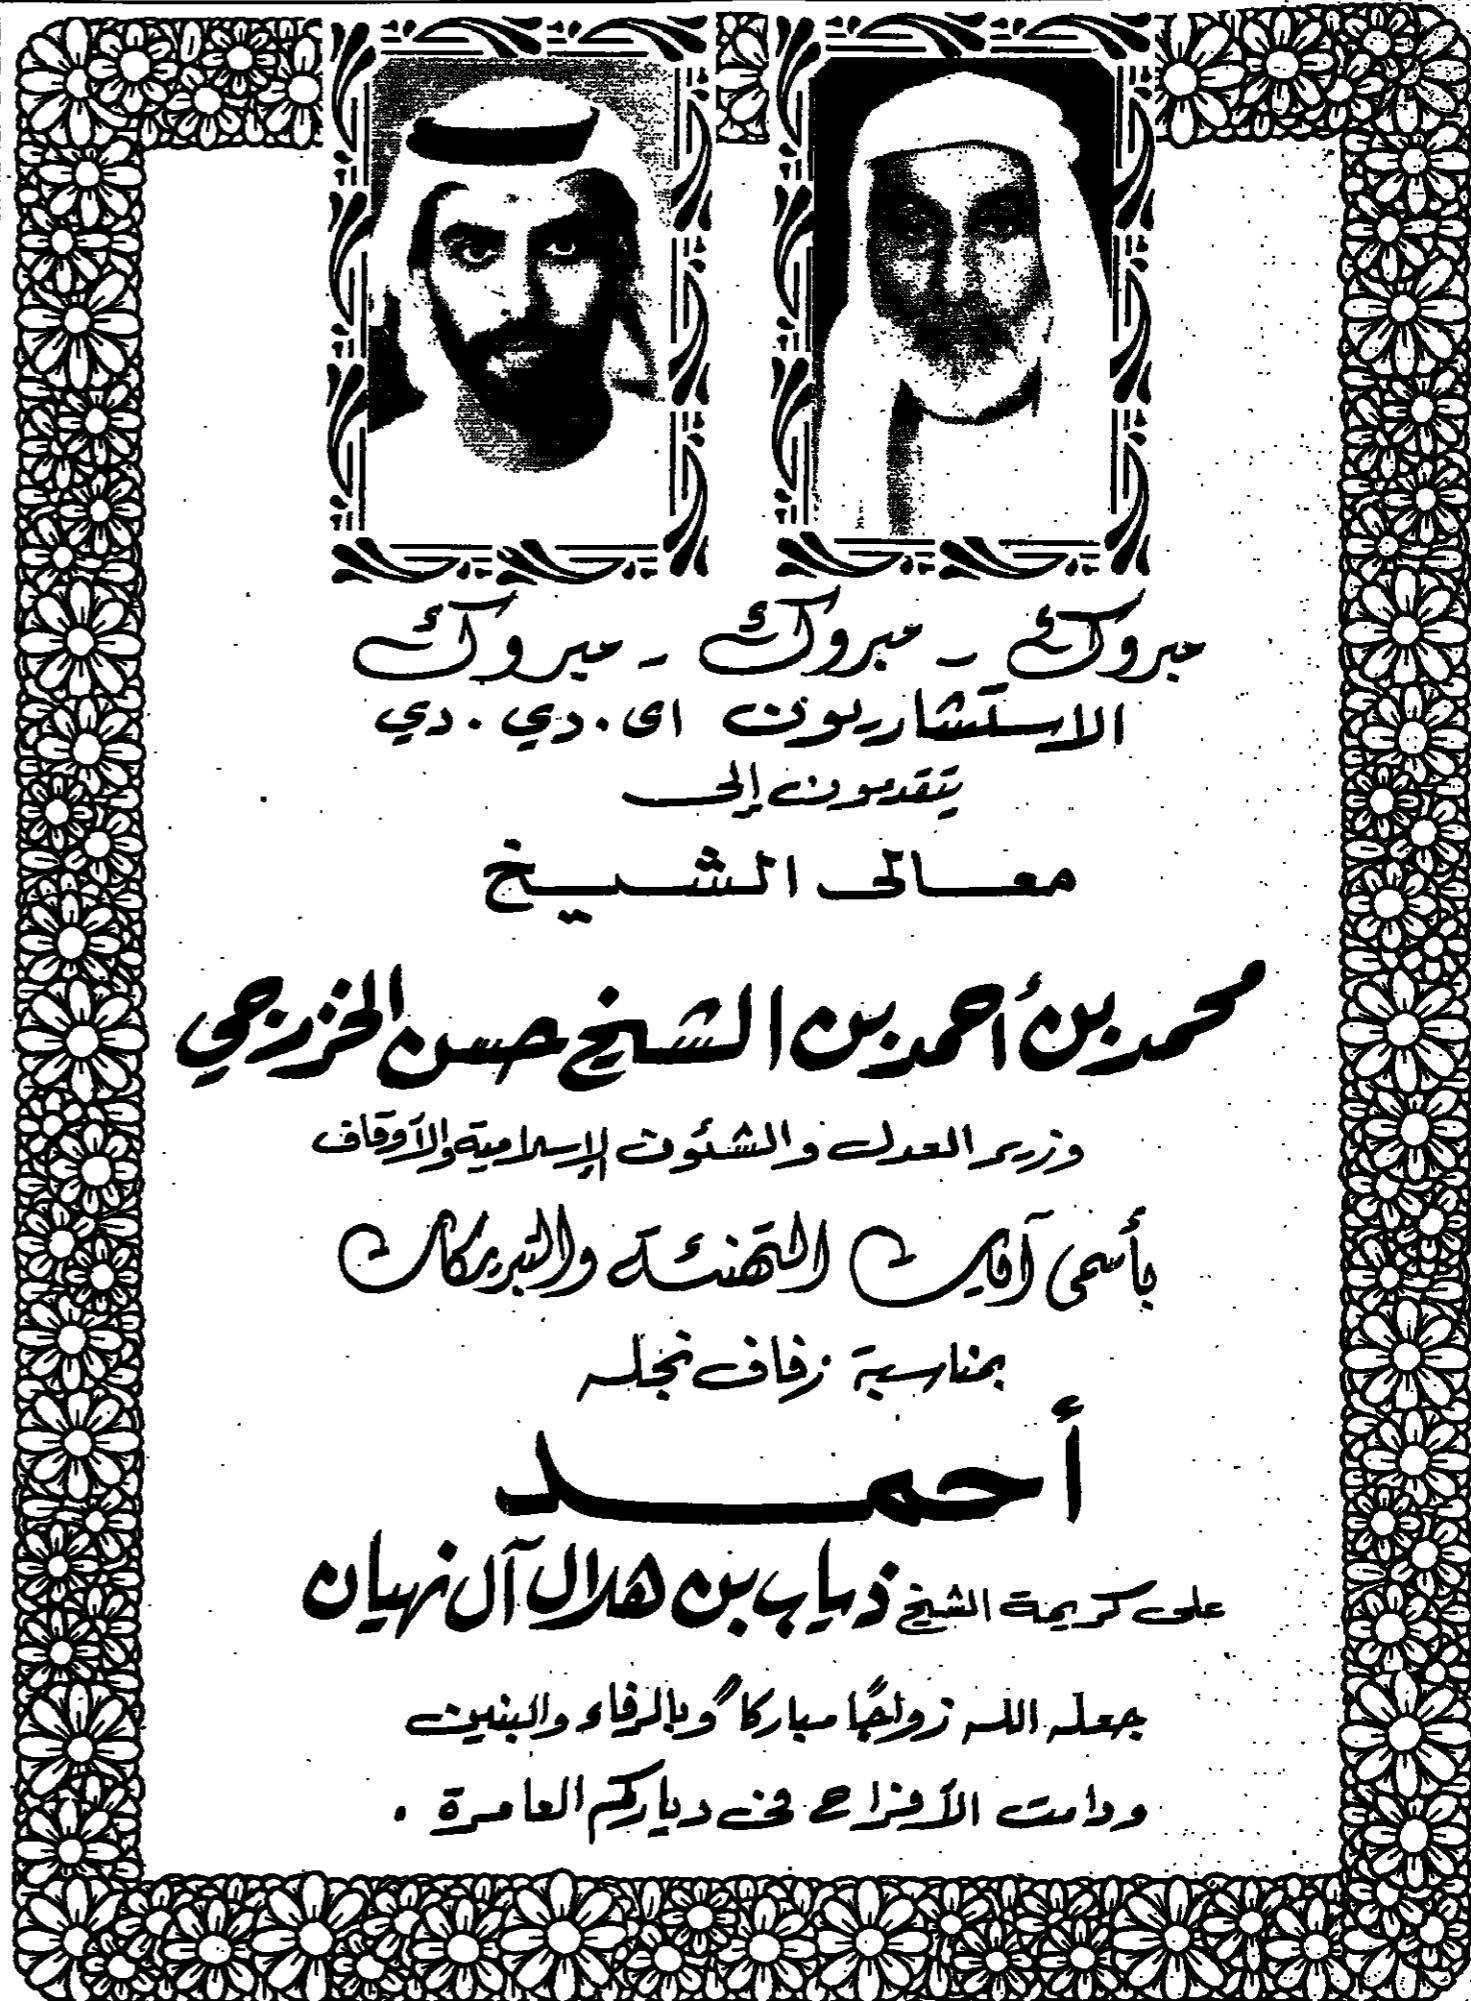 مبروك - مبروك - مبروك
الاستشاريون اى . دي . دي
يتقدمون إلى
معالى الشيخ
محمد بن أحمد بن الشيخ حسن الخزرجي
وزير العدل والشئون الإسلامية والأوقاف
بأسمى آيات التهنئة والتبريكات
بمناسبة زفاف نجله
أحمد
على كريمة الشيخ ذياب بن هلال آل نهيان
جعله الله زواجًا مباركاً وبالرفاء والبنين
ودامت الأفراح فى دياركم العامرة .